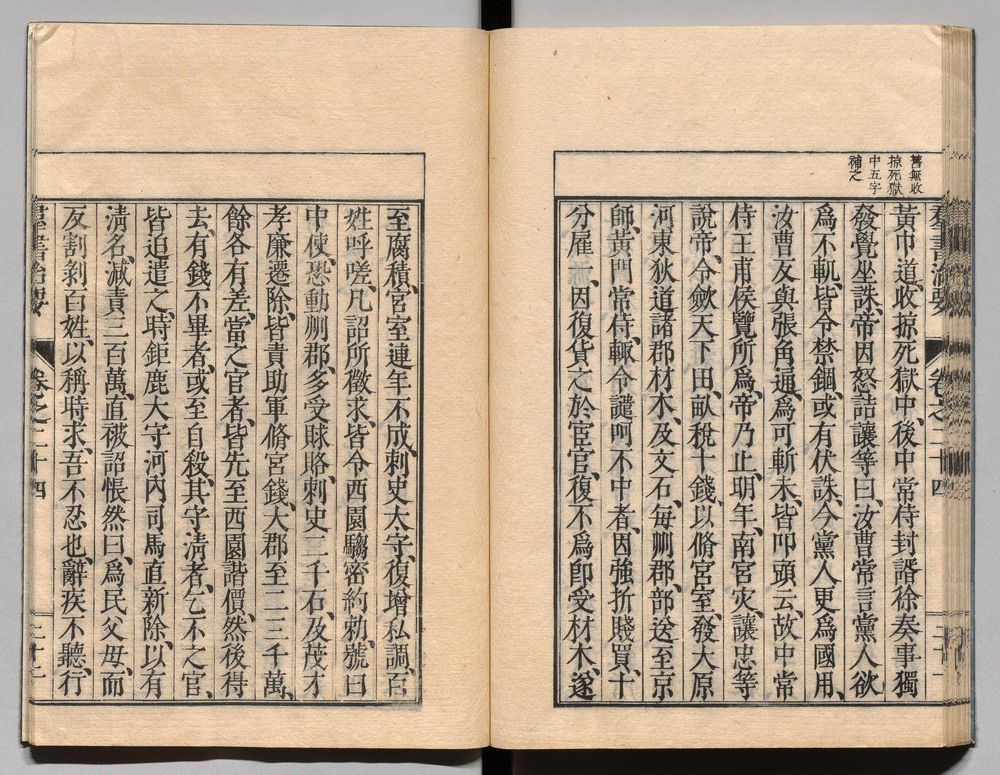 舊無收
掠死獄
中五字
補之
黃巾道、收掠死獄中、後中常侍封諝徐奏事獨
發覺坐誅、帝因怒詰讓等曰、汝曹常言黨人欲
爲不軌、皆令禁錮、或有伏誅、今黨人更爲國用、
汝曹反與張角通、爲可斬未、皆叩頭云、故中常
侍王甫侯覽所爲、帝乃止、明年、南宮災、讓忠等
說帝、令斂天下田、畝稅十錢、以脩宮室、發大原
河東狄道諸郡材木、及文石、每州郡、部送至京
師、黃門常侍、輒令譴呵不中者、因強折賤買、十
分雇一、因復貨之於宦官、復不爲卽受材木、遂
至腐積、宮室連年不成、刺史太守、復增私調、百
姓呼嗟、凡詔所徵求、皆令西園騶密約勑、號曰
中使、恐動州郡、多受賕賂、刺史二千石、及茂才
孝廉遷除、皆責助軍脩宮錢、大郡至二三千萬、
餘各有差、當之官者、皆先至西園諧價、然後得
去、有錢不畢者、或至自殺、其守淸者、乞不之官、
皆迫遣之、時鉅鹿大守河內司馬直新除、以有
淸名、減責三百萬、直被詔悵然曰、爲民父母、而
反割剝百姓、以稱時求、吾不忍也、辭疾不聽、行
卷之二十四